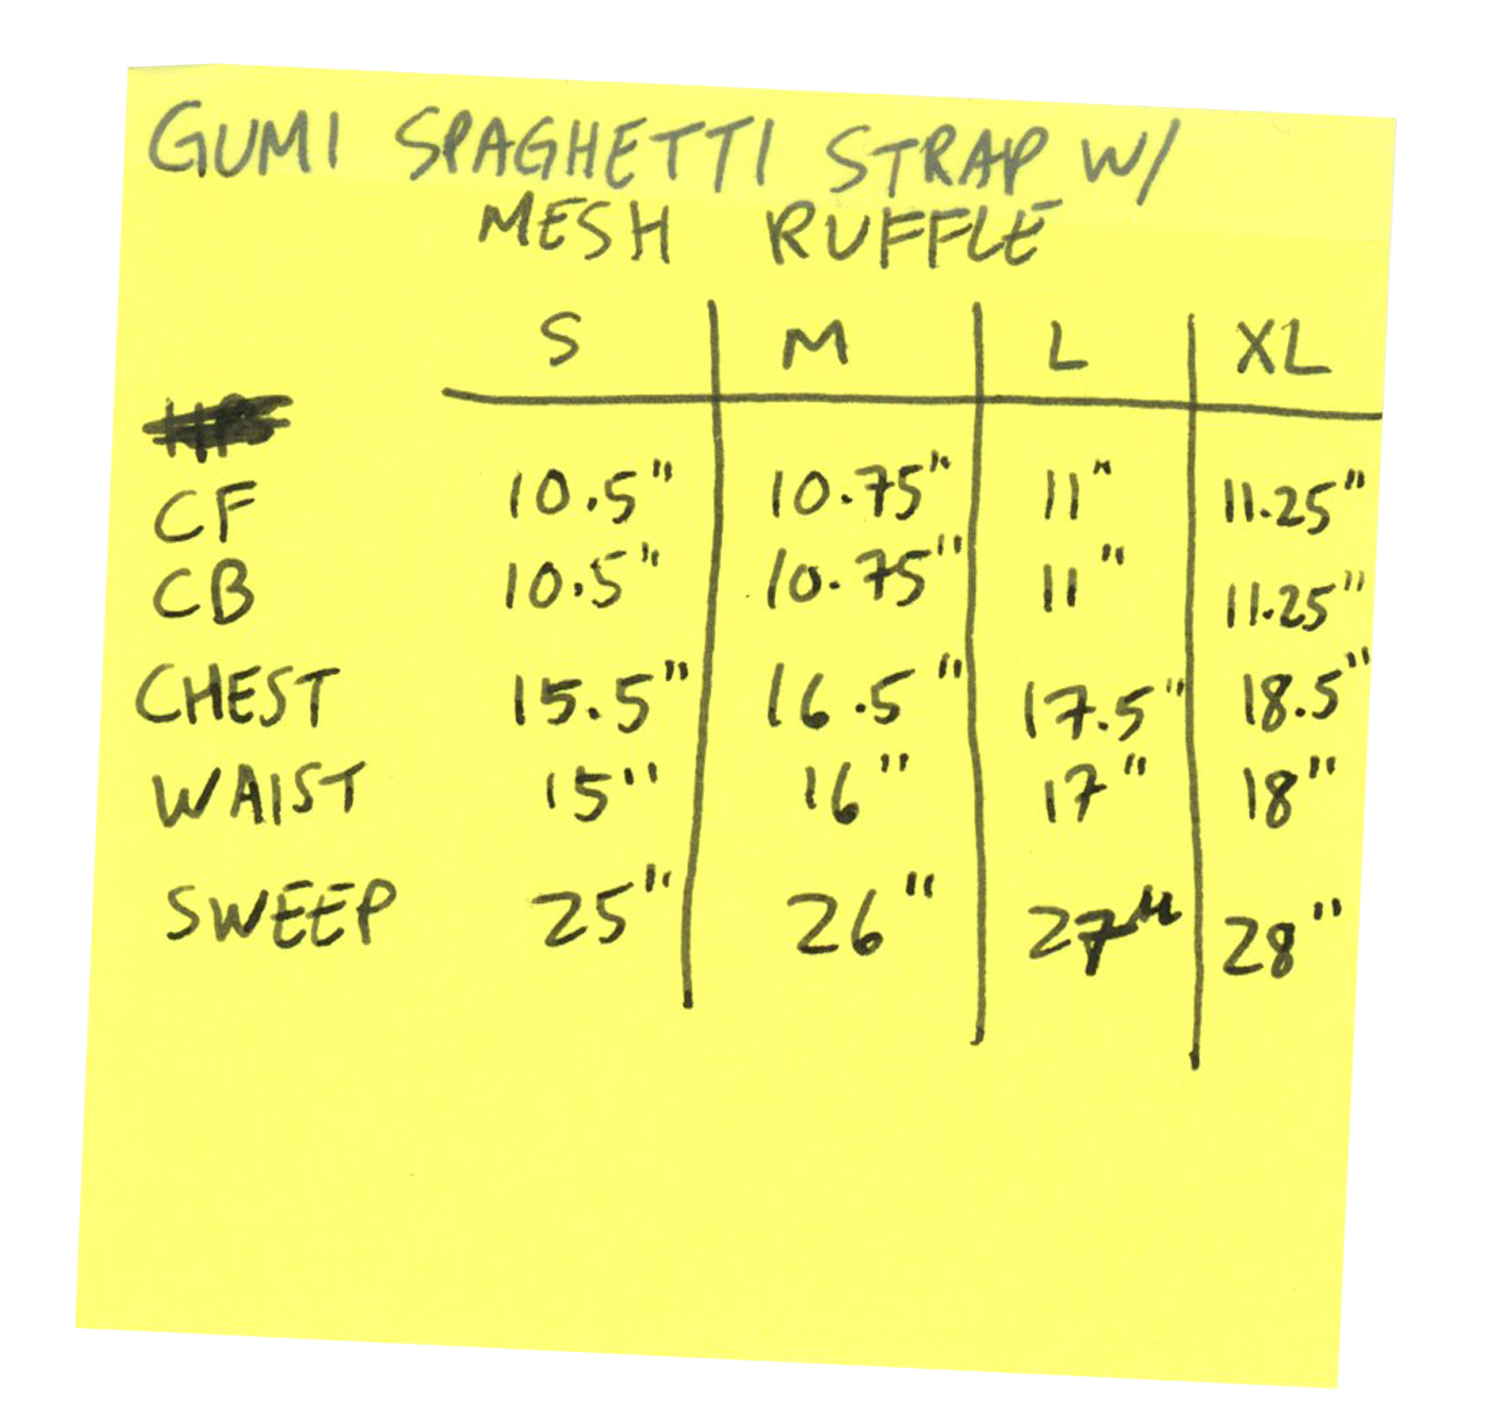 GUMI SPAGHETTI STRAP W/
MESH RUFFLE
S M L XL
CF 10.5" 10.75" 11" 11.25"
CB 10.5" 10.75" 11" 11.25"
CHEST 15.5" 16.5" 17.5" 18.5"
WAIST 15" 16" 17" 18"
SWEEP 25" 26" 27" 28"